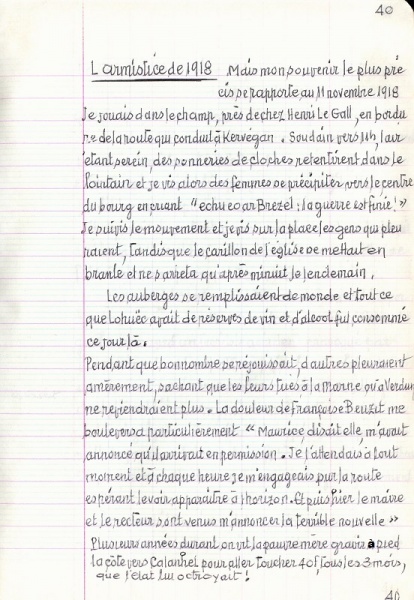 40
L'armistice de 1918 Mais mon souvenir le plus pré
cis se rapporte au 11 novembre 1918
Je jouais dans le champ, près de chez Henri Le Gall, en bordu
re de la route qui conduit à Kervégan. Soudain vers 11h, l'air
étant serein, des sonneries de cloches retentirent dans le
lointain et je vis alors des femmes se précipiter vers le centre
du bourg en criant "echu eo ar Brezel : la guerre est finie!"
Je suivis le mouvement et je vis sur la place les gens qui pleu
raient, tandis que le carillon de l'église se mettait en
branle et ne s'arrêta qu'après minuit le lendemain.
Les auberges se remplissaient de monde et tout ce
que Lohuëc avait de réserves de vin et d'alcool fut consommé
ce jour là.
Pendant que bon nombre se réjouissait, d'autres pleuraient
amèrement, sachant que les leurs tués à la Marne ou à Verdun
ne reviendraient plus. La douleur de Françoise Beuzit me
bouleversa particulièrement "Maurice, disait elle, m'avait
annoncé qu'il arrivait en permission. Je l'attendais à tout
moment et à chaque heure je m'engageais sur la route
espérant le voir apparaître à l'horizon. Et puis hier le maire
et le recteur sont venus m'annoncer la terrible nouvelle"
Plusieurs années durant on vit la pauvre mère gravir à pied
la côte vers Calanhel pour aller toucher 40f, tous les 3 mois,
que l'état lui octroyait!
40